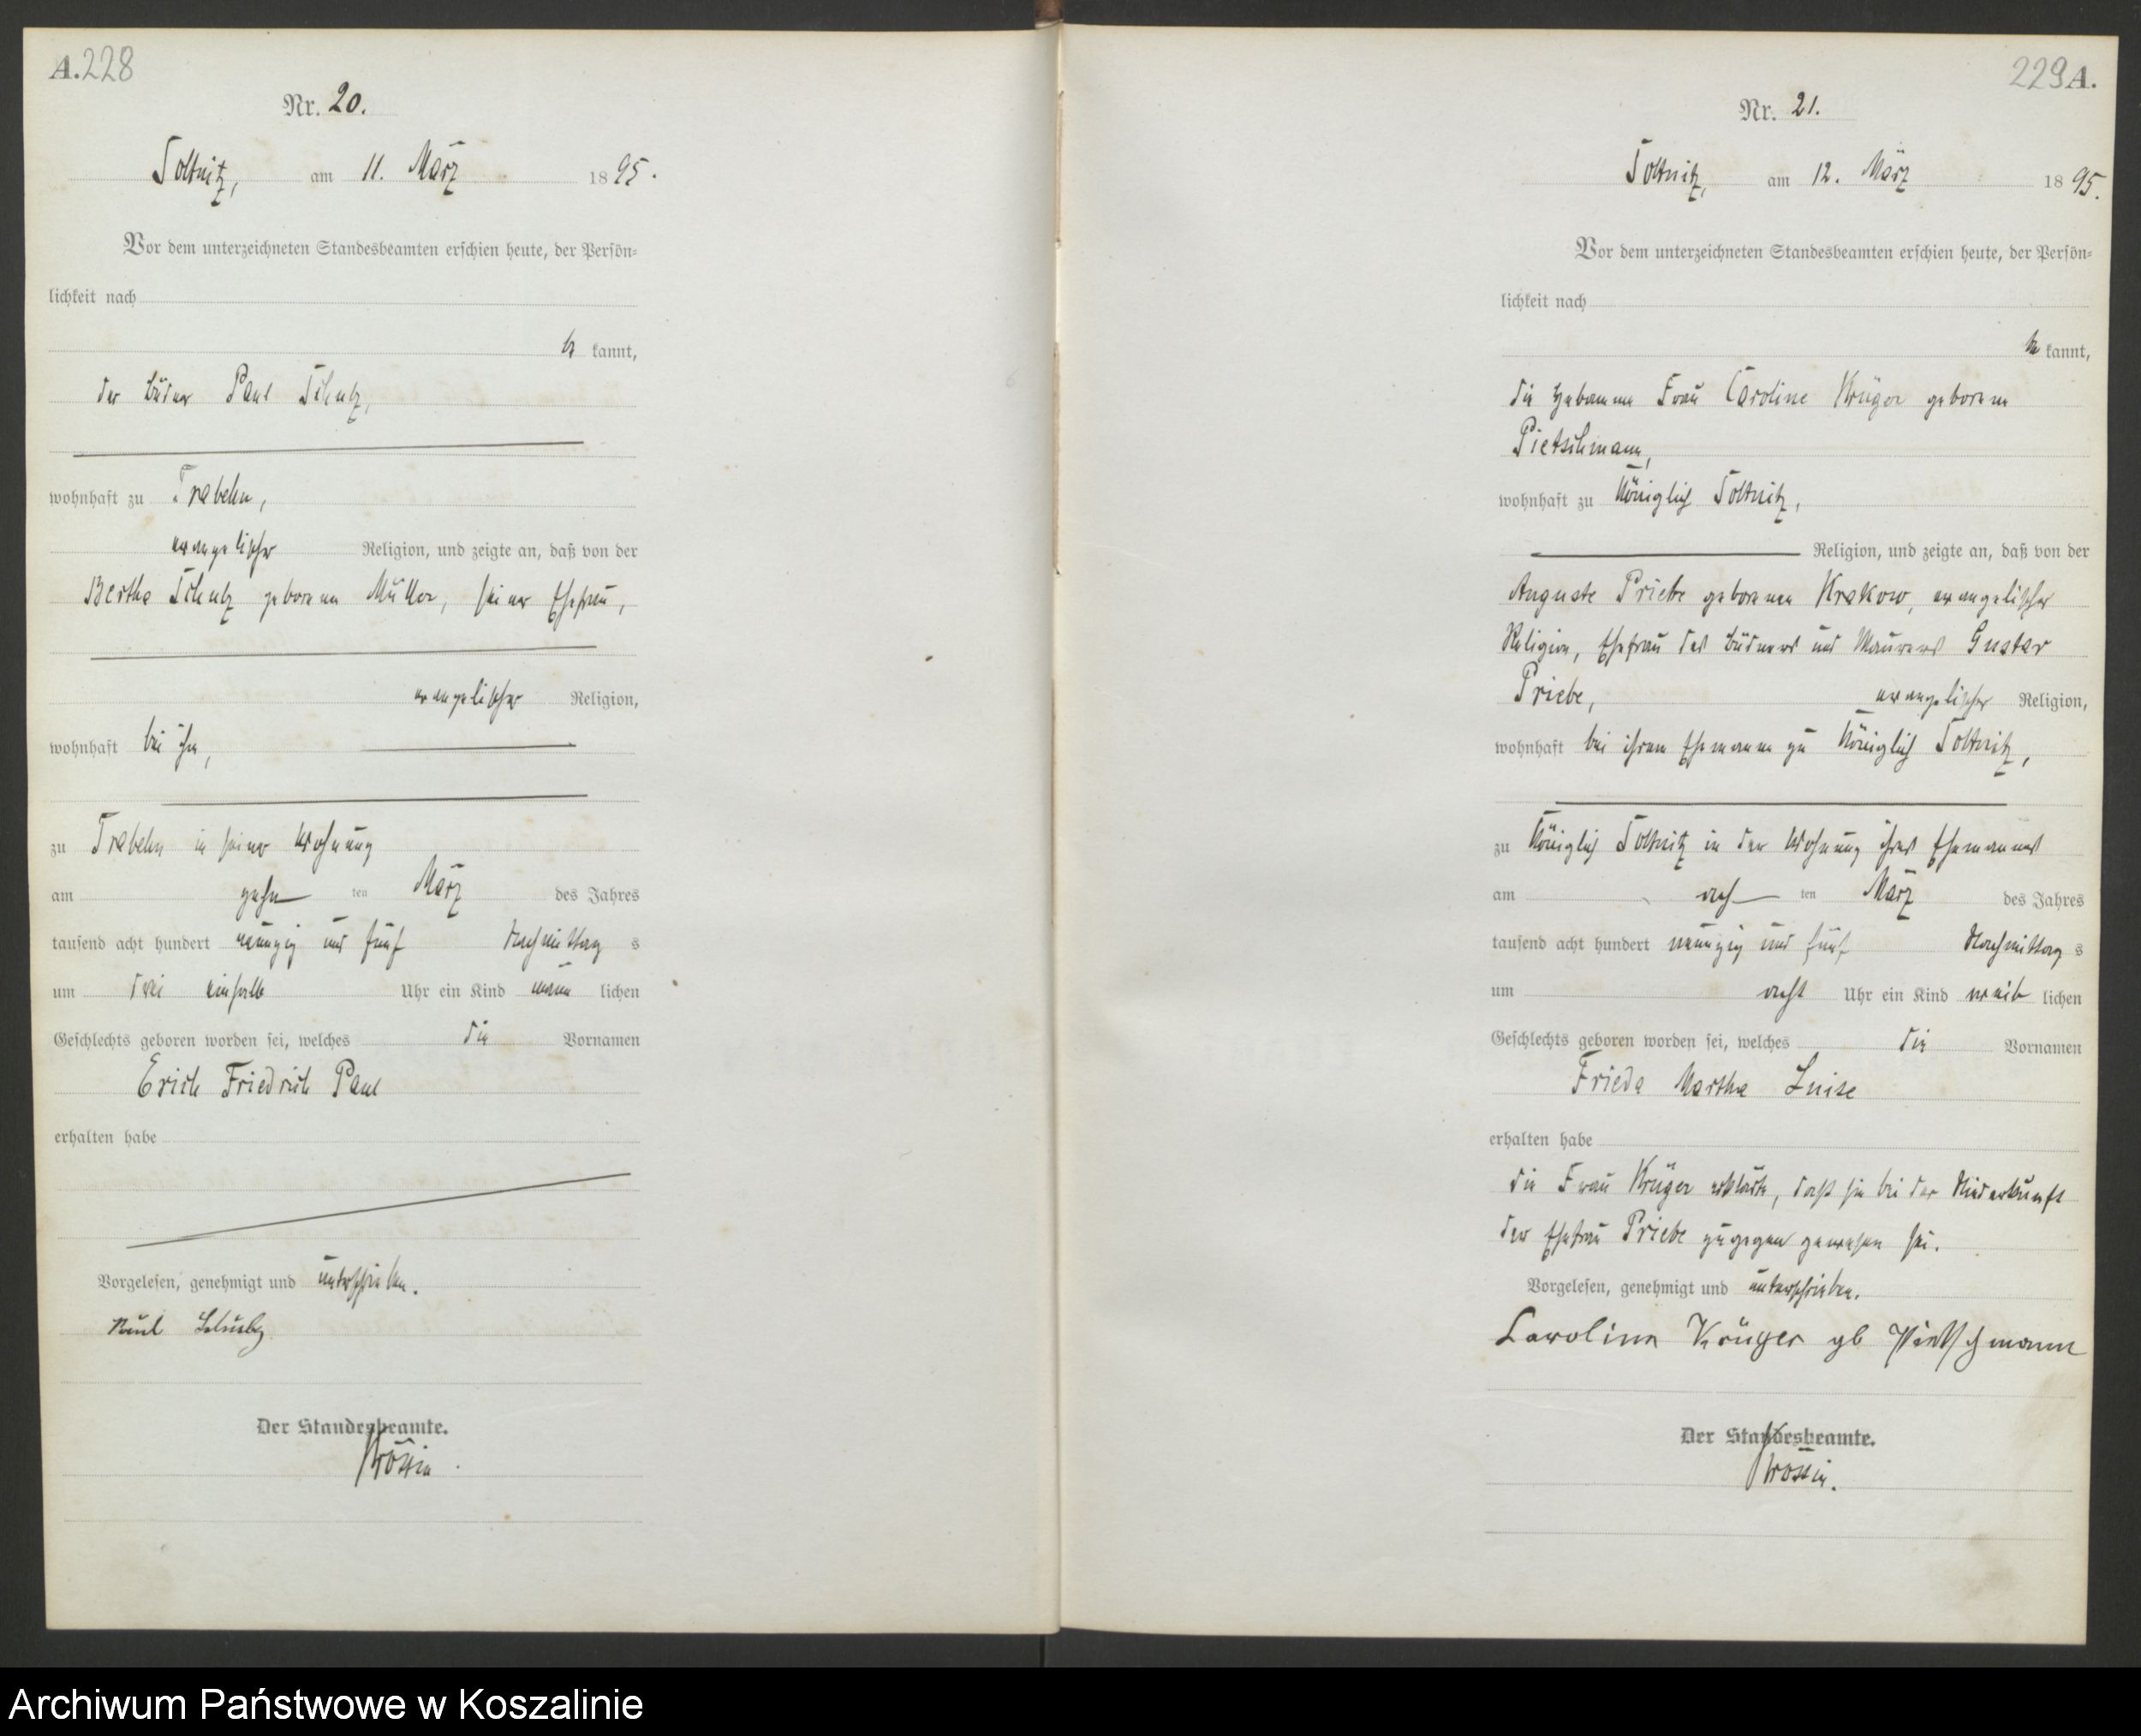 A. 228
Nr. 20.
Soltnitz, am 11. März 1895.
Vor dem unterzeichneten Standesbeamten erschien heute, der Persön-
lichkeit nach
be kannt,
der Büdner Paul Schulz,
wohnhaft zu Trabehn,
evangelischer Religion, und zeigte an, daß von der
Bertha Schulz geborenen Müller, seiner Ehefrau,
evangelischer Religion,
wohnhaft bei ihm,
zu Trabehn in seiner Wohnung
am zehn ten März des Jahres
tausend acht hundert neunzig und fünf Nachmittag s
um drei einhalb Uhr ein Kind männ lichen
Geschlechts geboren worden sei, welches die Vornamen
Erich Friedrich Paul
erhalten habe
Vorgelesen, genehmigt und unterschrieben.
Paul Schulz
Der Standesbeamte.
229 A.
Nr. 21.
Soltnitz, am 12. März 1895.
Vor dem unterzeichneten Standesbeamten erschien heute, der Persön-
lichkeit nach
be kannt,
die Hebamme Frau Caroline Krüger geborene
Pietschmann,
wohnhaft zu Königlich Soltnitz,
Religion, und zeigte an, daß von der
Auguste Priebe geborenen Krakow, evangelischer
Religion, Ehefrau des Büdners und Maurers Gustav
Priebe, evangelischer Religion,
wohnhaft bei ihrem Ehemanne zu Königlich Soltnitz,
zu Königlich Soltnitz in der Wohnung ihres Ehemannes
am ach ten März des Jahres
tausend acht hundert neunzig und fünf Nachmittag s
um acht Uhr ein Kind weib lichen
Geschlechts geboren worden sei, welches die Vornamen
Frieda Martha Luise
erhalten habe
die Frau Krüger erklärte, daß sie bei der Niederkunft
der Ehefrau Priebe zugegen gewesen sei.
Vorgelesen, genehmigt und unterschrieben.
Caroline Krüger gb Pietschmann
Der Standesbeamte.
Archiwum Państwowe w Koszalinie